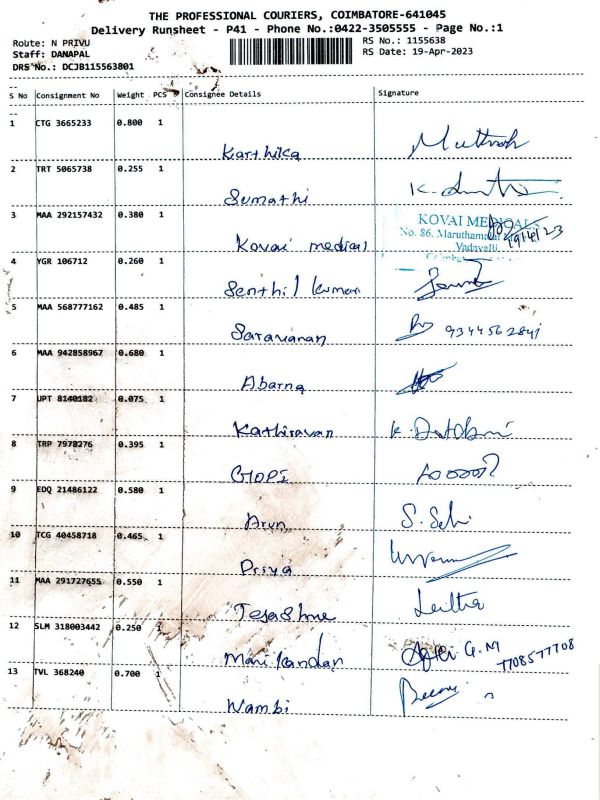 THE PROFESSIONAL COURIERS, COIMBATORE-641045
Delivery Runsheet - P41 - Phone No.:0422-3505555 - Page No.:1
Route: N PRIVU
RS No.: 1155638
Staff: DANAPAL
RS Date: 19-Apr-2023
DRS No.: DCJB115563801
S No Consignment No Weight PCS Consignee Details Signature
1 CTG 3665233 0.800 1
Karthika
2 TRT 5065738 0.255 1
Sumathi
3 MAA 292157432 0.380 1
KOVAI MEDICALS
No. 86, Maruthamalai
Vadavalli,
19/4/23
Kovai medicals
4 YGR 106712 0.260 1
Senthil kumar
5 MAA 568777162 0.485 1
Saravanan 9344562841
6 MAA 942858967 0.680 1
Abarna
7 UPT 8140182 0.075 1
Kathiravan
8 TRP 7978276 0.395 1
GOPI
9 EDQ 21486122 0.580 1
Arun
10 TCG 40458718 0.465 1
Priya
11 MAA 291727655 0.550 1
12 SLM 318003442 0.250 1
Manikandan G.M 7708577708
13 TVL 368240 0.700 1
Wambi